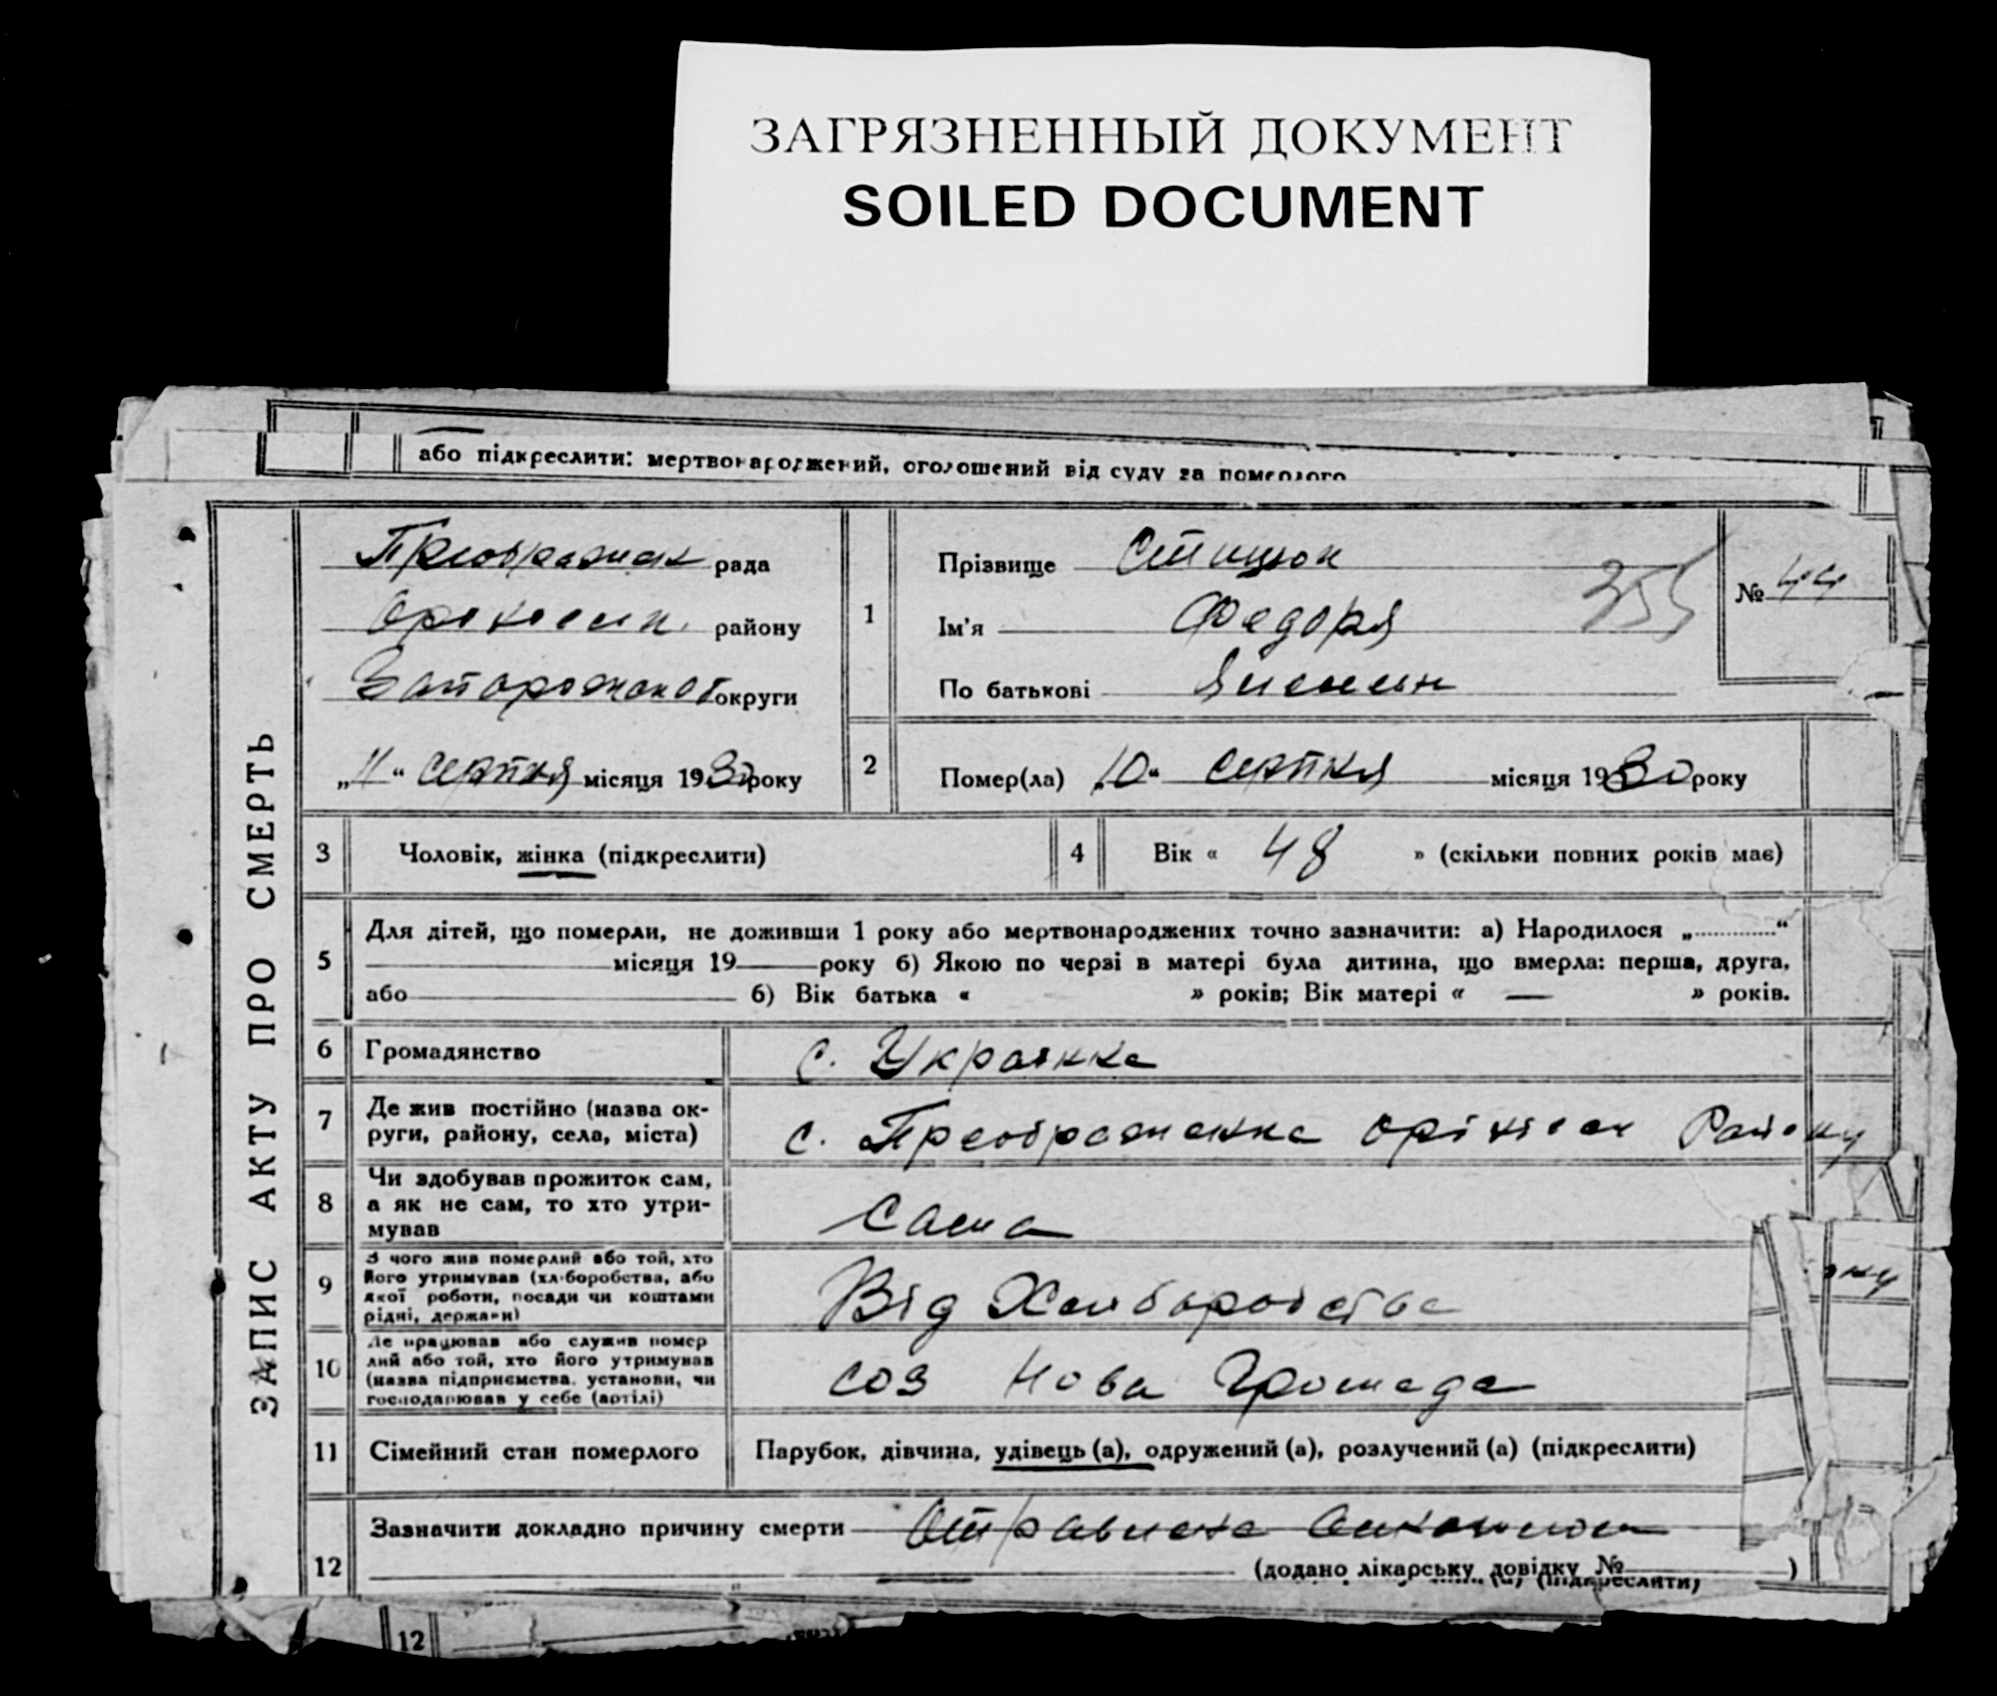 ЗАГРЯЗНЕННЫЙ ДОКУМЕНТ
SOILED DOCUMENT
або підкреслити: мертвонароджений, оголошений від суду за померлого
ЗАПИС АКТУ ПРО СМЕРТЬ
рада
району
округи
„11“ серпня місяця 1930 року
1
Прізвище
Ім'я Федора
По батькові
№ 44
355
2
Помер(ла) „10“ серпня місяця 1930 року
3 Чоловік, жінка (підкреслити)
4 Вік « 48 » (скільки повних років має)
5 Для дітей, що померли, не доживши 1 року або мертвонароджених точно зазначити: а) Народилося „............“
місяця 19 року б) Якою по черзі в матері була дитина, що вмерла: перша, друга,
або б) Вік батька « » років; Вік матері « — » років.
6 Громадянство с. Украинка
7 Де жив постійно (назва ок-
руги, району, села, міста)
с. Преображенка Оріхівськ Району
8 Чи здобував прожиток сам,
а як не сам, то хто утри-
мував
Сама
9 З чого жив померлий або той, хто
його утримував (хліборобства, або
якої роботи, посади чи коштами
рідні, держави)
Від Хліборобства
10 Де працював або служив помер
лий або той, хто його утримував
(назва підприємства, установи, чи
господарював у себе (артілі)
соз Нова Громада
11 Сімейний стан померлого Парубок, дівчина, удівець (а), одружений (а), розлучений (а) (підкреслити)
12 Зазначити докладно причину смерти
(додано лікарську довідку № )
(підкреслити)
12